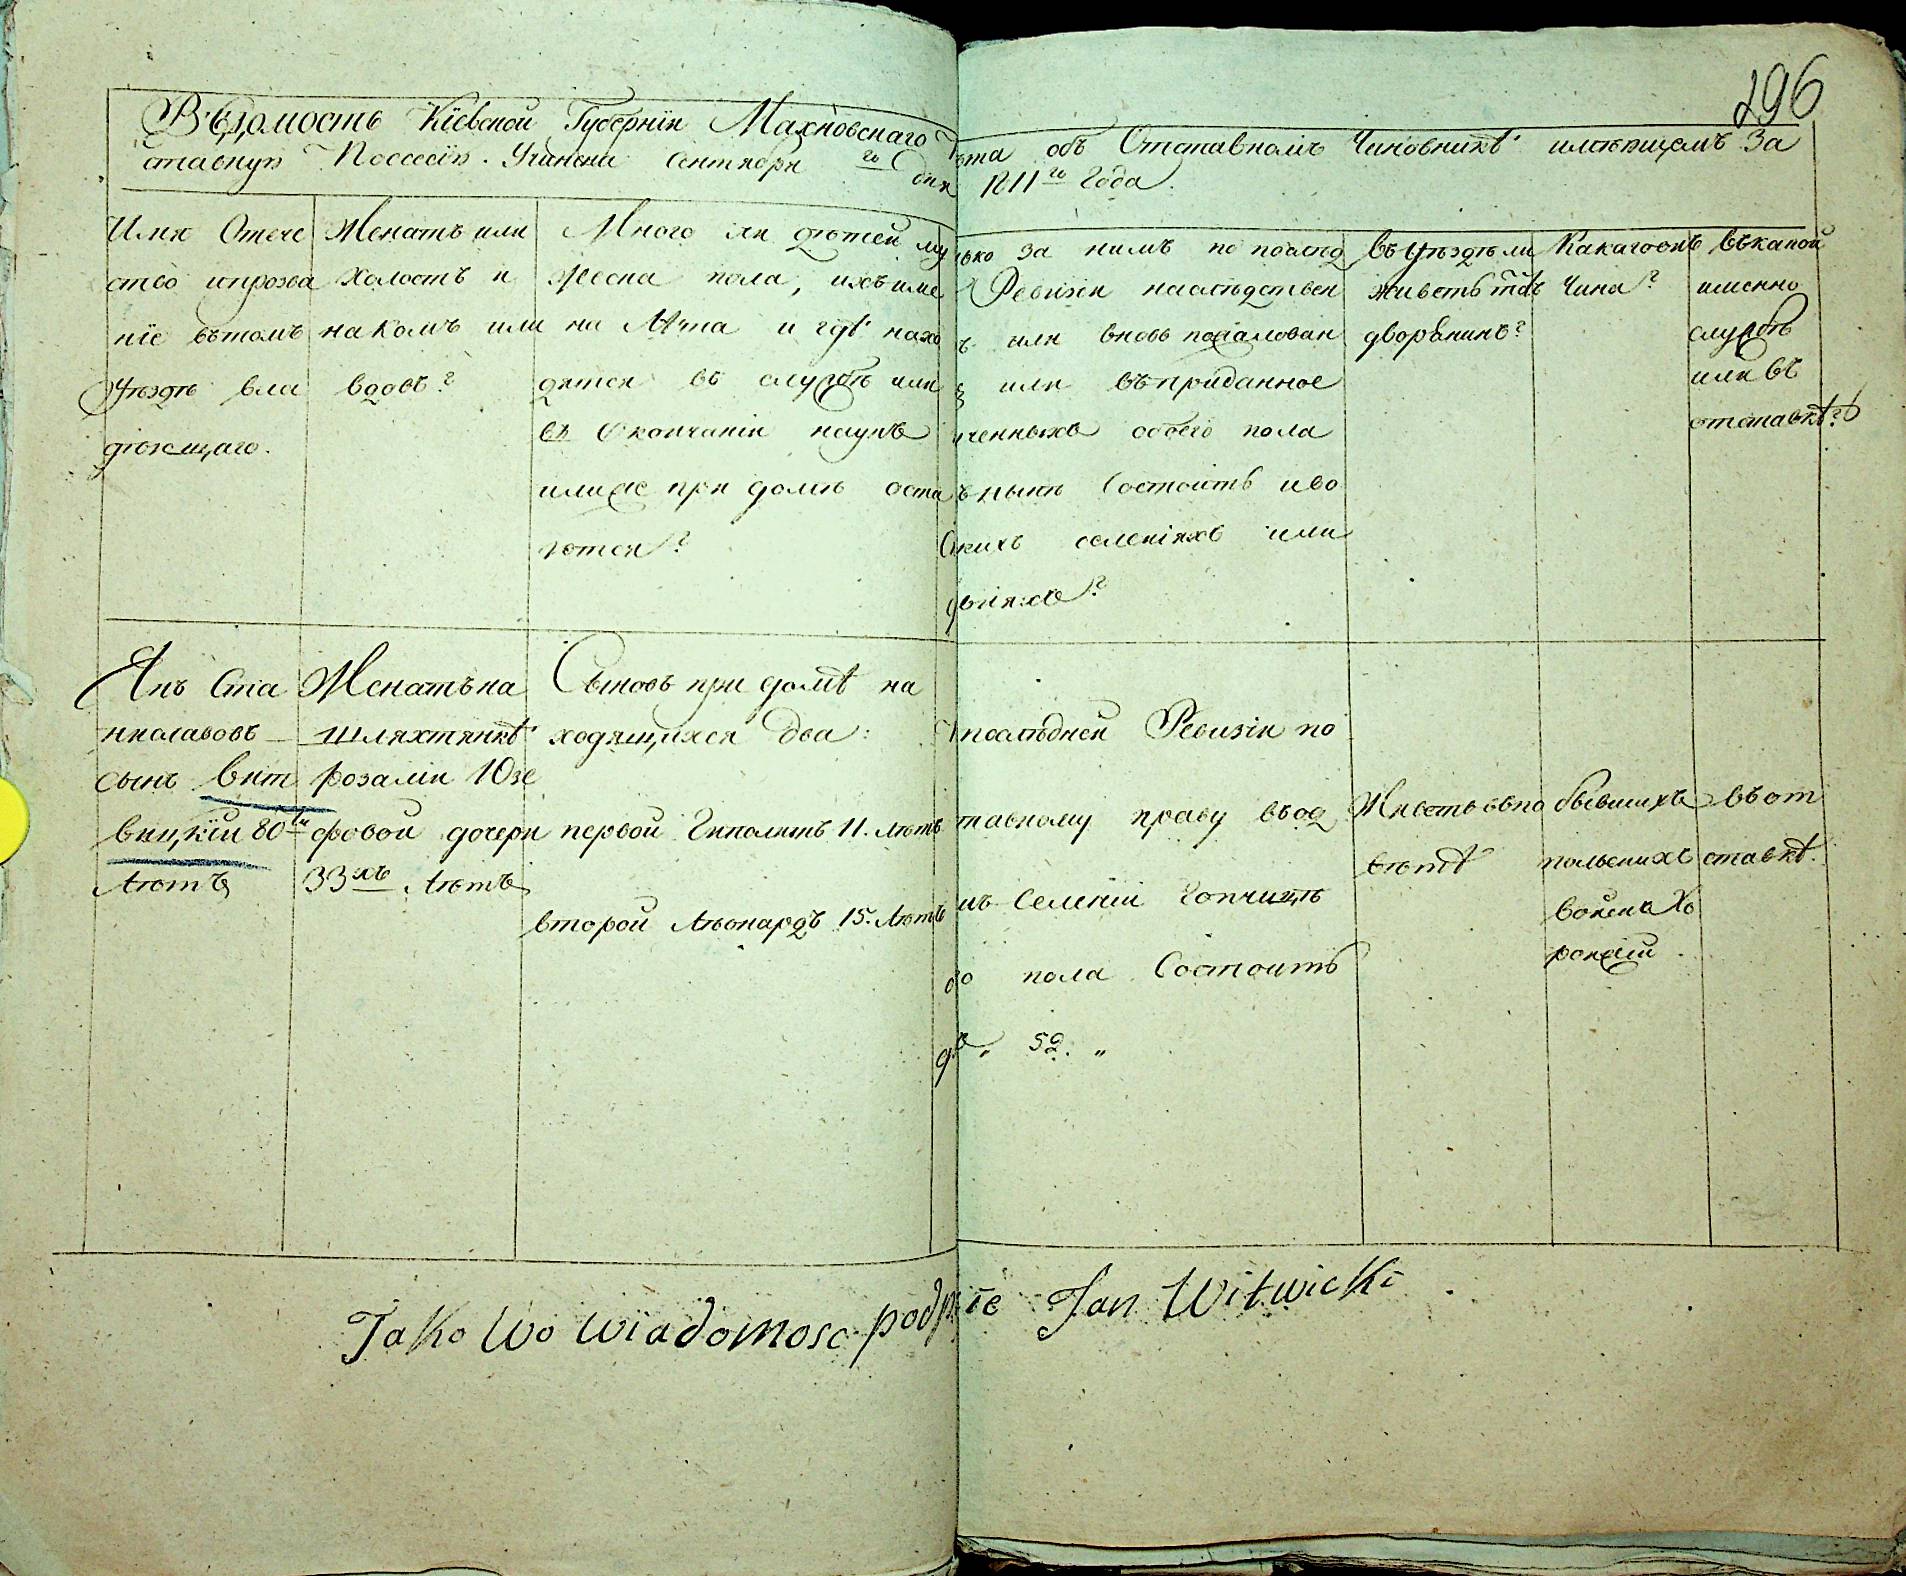 296
Вѣдомость Кіевской Губерніи Махновского
ѣта объ Отставномъ Чиновникѣ имѣющемъ За
ставную Поссесію. Учинена Сентября го дня
1811го Года.
Имя Отече
ство и прозва
ніе вътомъ
Уѣздѣ вла
дѣющаго.
Женатъ или
холостъ и
накомъ или
вдовъ?
Много ли дѣтей му
жеска пола, ихъ име
на Лѣта и гдѣ нахо
дятся въ службѣ или
въ Окончаніи наукъ
или же при домѣ оста
ются?
ько за нимъ по послѣд
Ревизіи наслѣдствен
ъ или вновь пожалован
или въ приданное
ченныхъ обоего пола
ъ нынѣ Состоитъ и во
кихъ селеніяхъ или
вняхъ?
Въ Уѣздѣ ли
живетъ тотъ
дворянинъ?
Какаго онъ
Чина?
Въ какой
именно
службѣ
или въ
отставкѣ?
Янъ Ста
ниславовъ
сынъ Вит
вицкій 80ти
Лѣтъ
Женатъ на
шляхтянкѣ
розаліи Юзе
фовой дочери
33хъ Лѣтъ
Сыновъ при домѣ на
ходящихся два:
первой Гиполитъ 11. Лѣтъ
второй Лѣонардъ 15. Лѣтъ
послѣдней Ревизіи по
тавному праву въ од
мъ Селеніи Гопчицѣ
го пола Состоитъ
52.
Живетъ въ по
вѣтѣ
бывшихъ
польскихъ
войскъ Хо
ронжій.
въ от
ставкѣ.
Jako Wo Wiadomosc podp
ie Jan Witwicki